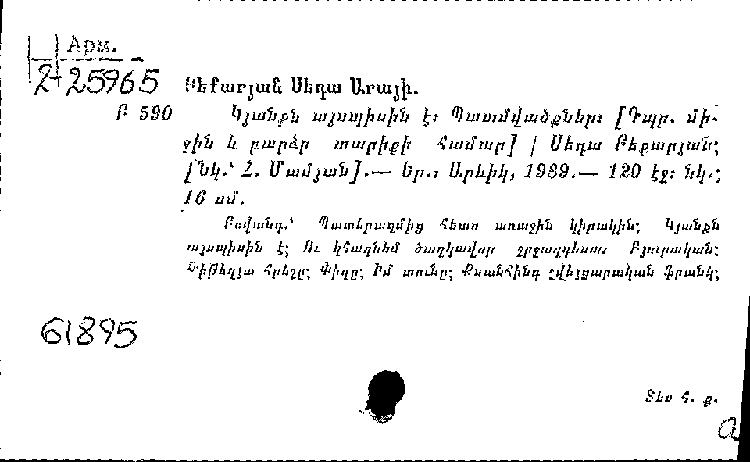 Арм.
2-25965
Թեքարյան Սեդա Արայի.
Թ 590
Կյանքն այսպիսին է: Պատմվածքներ: [Դպր. մի-
ջին և բարձր տարիքի համար] / Սեդա Թեքարյան;
[Նկ.՝ Հ. Մամյան].— Եր.: Արևիկ, 1989.— 120 էջ: նկ.;
16 սմ.
Բովանդ.՝ Պատերազմից հետո առաջին կիրակին; Կյանքն
այսպիսին է; Ու կհագնեմ ծաղկավոր շրջազգեստս Բյուրական;
հրեշը; Փիղը; Իմ տունը; Քսանհինգ շվեյցարական ֆրանկ;
61895
Տես հ. ք.
a